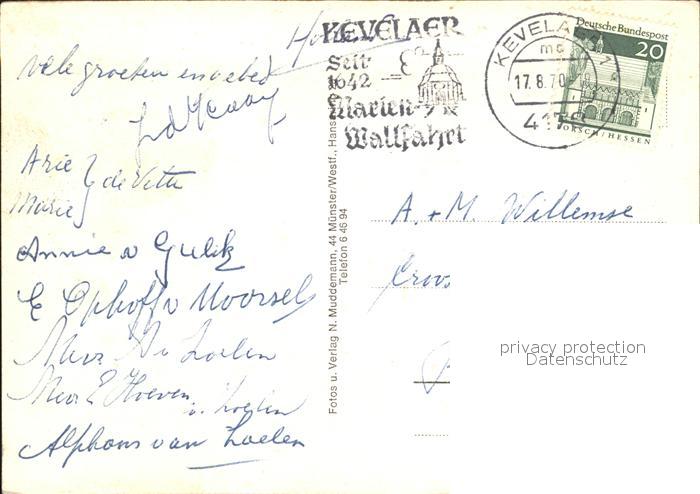 vele groeten en gebed
Arie
Marie } de Veth
Annie v Gulik
E Ophoff v Moorsel
Mevr. v. Loelen
Mevr E Hoeven
v. Loelen
Alphons van Loelen
KEVELAER
Seit
1642
Marien-
Wallfahrt
KEVELAER 1
mc
17.8.70
4178
Deutsche Bundespost
20
LORSCH/HESSEN
Fotos u. Verlag N. Muddemann, 44 Münster/Westf., Hans
Telefon 6 46 94
A. + M. Willemse
privacy protection
Datenschutz